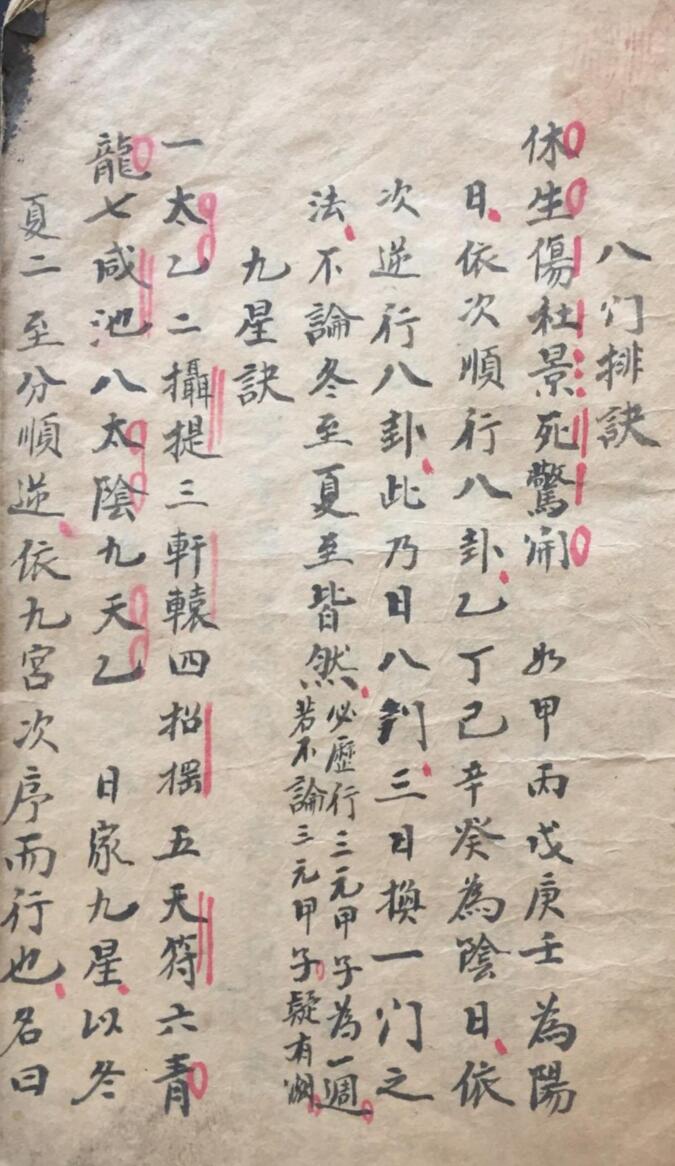 八门排訣
休生傷杜景死驚開　如甲丙戊庚壬為陽
日依次順行八卦乙丁己辛癸為陰日依
次逆行八卦此乃日八判三日換一门之
法不論冬至夏至皆然必歷行三元甲子為一週
若不論三元甲子疑有
九星訣
一太乙二攝提三軒轅四招搖五天符六青
龍七咸池八太陰九天乙　日家九星以冬
夏二至分順逆依九宮次序而行也名曰